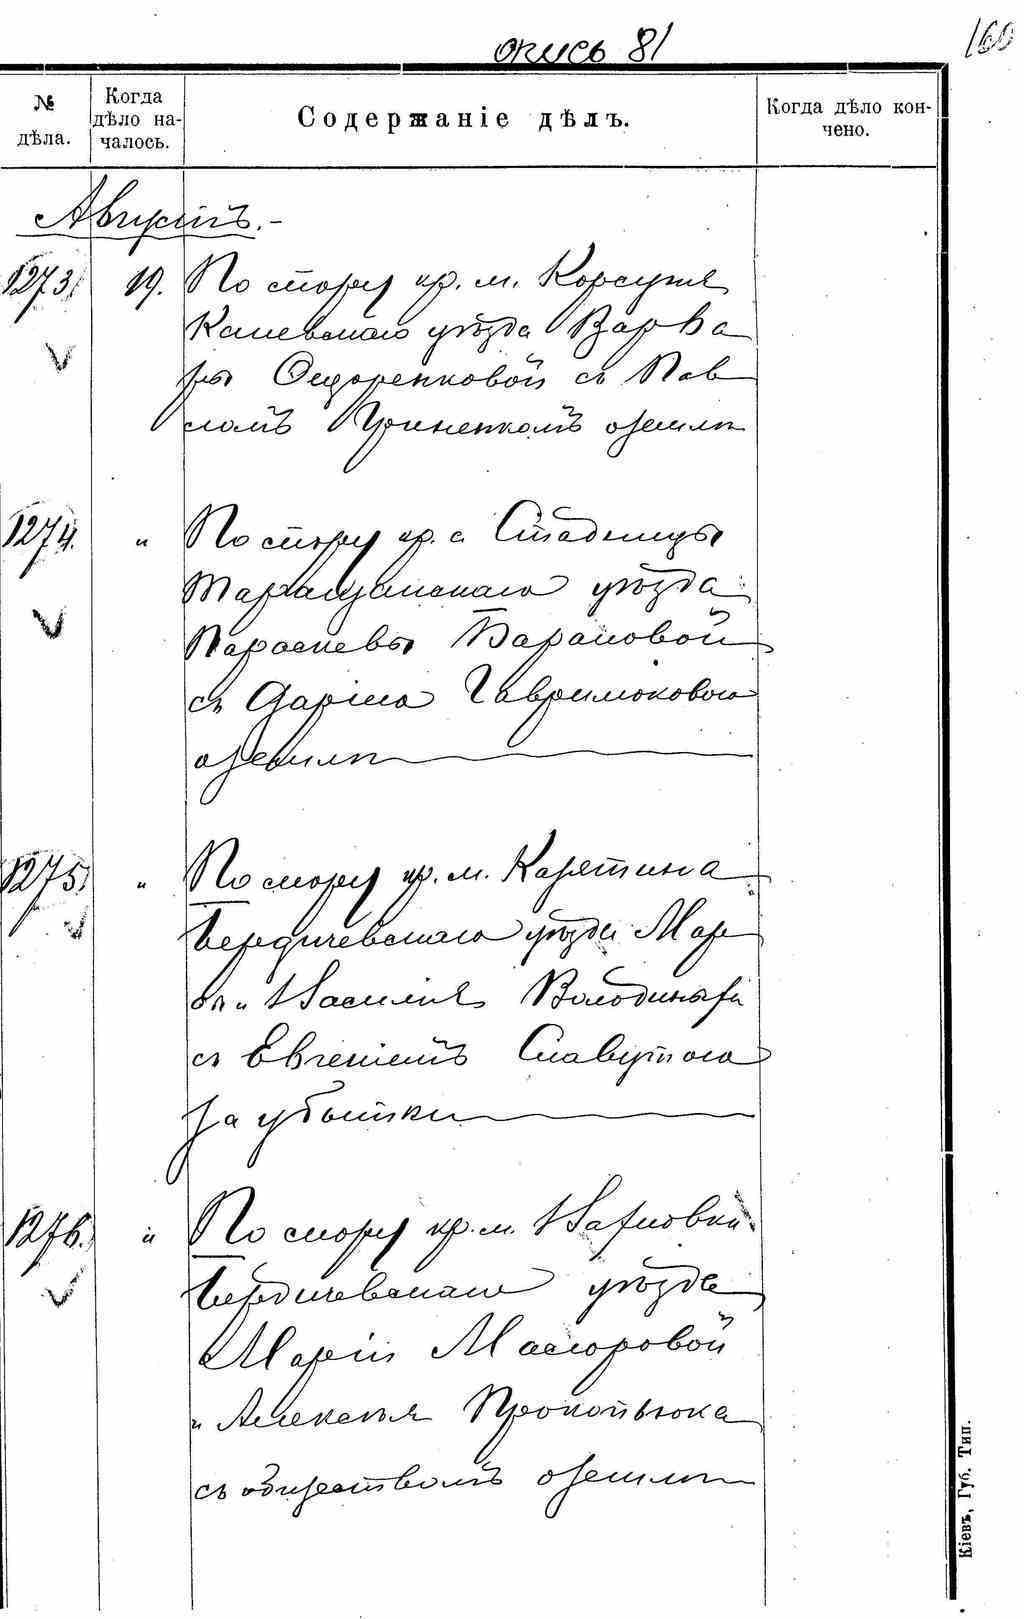 опись 81
160
№ дѣла.
Когда дѣло началось.
Содержаніе дѣлъ.
Когда дѣло кончено.
Августъ.-
1273. 19. По спору кр. м. Корсуня
Каневскаго уѣзда Варва
ры Сидоренковой съ Пав
ломъ Гриненкомъ о земли
1274. " По спору кр. с. Стадницы
Таращанскаго уѣзда
Параскевы Барановой
съ Даріею
о земли
1275. " По спору кр. м.
Бердичевскаго уѣзда Мар
и Василія
съ Евгеніемъ
за убытки
1276. " По спору кр. м.
Бердичевскаго уѣзда
Маріи Масюровой
и Алексѣя Прокопьюка
съ обществомъ о земли
Кіевъ, Губ. Тип.